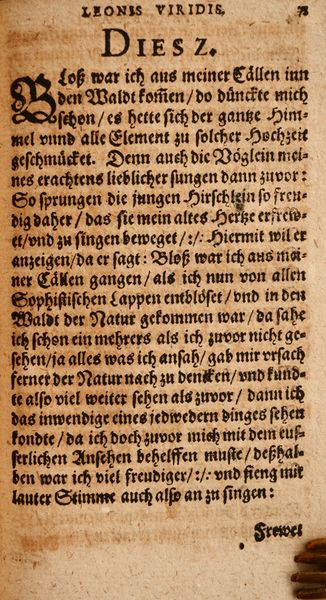 LEONIS VIRIDIS. 78
DIES 2.
BLoß war ich aus meiner Cällen inn
den Waldt kom̃en / do dünckte mich
schon / es hette sich der gantze Him-
mel vnnd alle Element zu solcher Hochzeit
geschmücket. Denn auch die Vöglein mei-
nes erachtens lieblicher sungen dann zuvor:
So sprungen die jungen Hirschlein so freu-
dig daher / das sie mein altes Hertze erfrew-
et / vnd zu singen beweget / :/: Hiermit wil er
anzeigen / da er sagt: Bloß war ich aus mei-
ner Cällen gangen / als ich nun von allen
Sophistischen Lappen entblöset / vnd in den
Waldt der Natur gekommen war / da sahe
ich schon ein mehrers als ich zuvor nicht ge-
sehen / ja alles was ich ansah / gab mir vrsach
ferner der Natur nach zu dencken / vnd kund-
te also viel weiter sehen als zuvor / dann ich
das inwendige eines jedwedern dinges sehen
kondte / da ich doch zuvor mich mit dem euß-
serlichen Ansehen behelffen muste / deßhal-
ben war ich viel freudiger / :/: vnd fieng mit
lauter Stimme auch also an zu singen:
Frewet